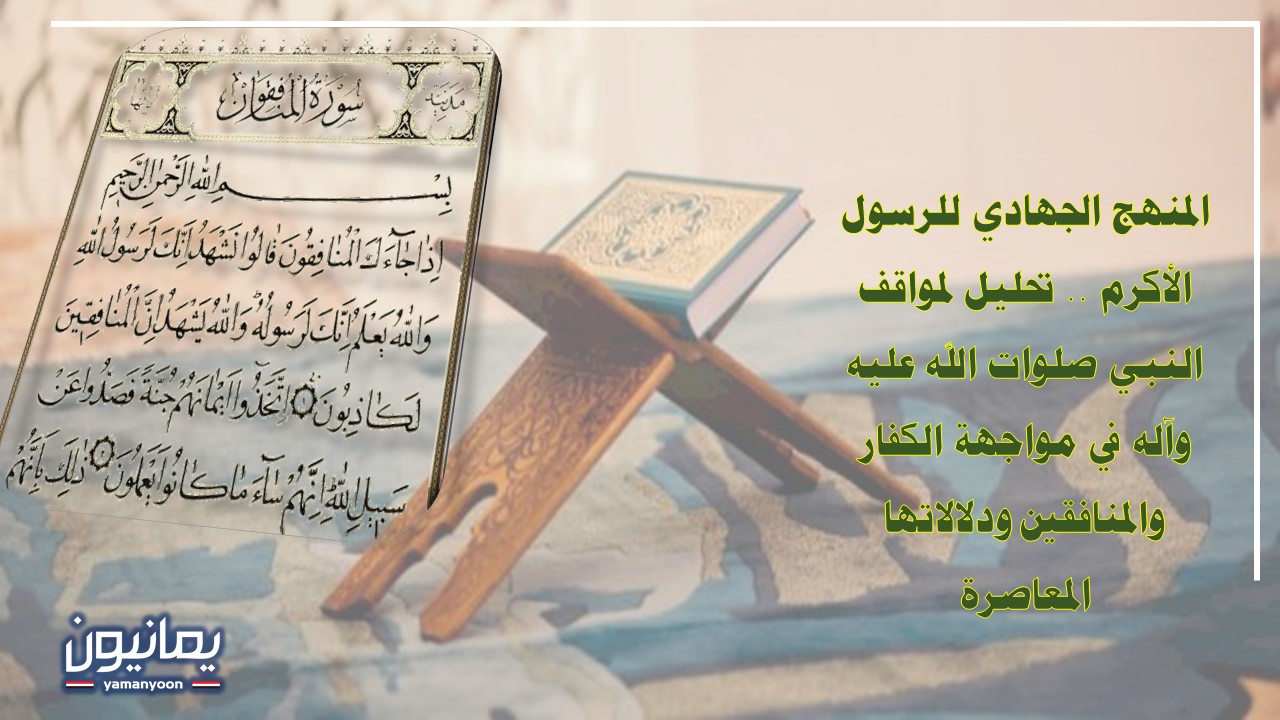 سُورَةُ المُنَافِقُون
مدنية
بِسْمِ اللَّهِ الرَّحْمَٰنِ الرَّحِيمِ
إِذَا جَآءَكَ الْمُنَافِقُونَ قَالُوا نَشْهَدُ إِنَّكَ لَرَسُولُ اللَّهِ
وَاللَّهُ يَعْلَمُ إِنَّكَ لَرَسُولُهُ وَاللَّهُ يَشْهَدُ إِنَّ الْمُنَافِقِينَ
لَكَاذِبُونَ اتَّخَذُوا أَيْمَانَهُمْ جُنَّةً فَصَدُّوا عَنْ
سَبِيلِ اللَّهِ إِنَّهُمْ سَآءَ مَا كَانُوا يَعْمَلُونَ ذَٰلِكَ بِأَنَّهُمْ
المنهج الجهادي للرسول
الأكرم .. تحليل لمواقف
النبي صلوات الله عليه
وآله في مواجهة الكفار
والمنافقين ودلالاتها
المعاصرة
يمانيون
yamanyoon